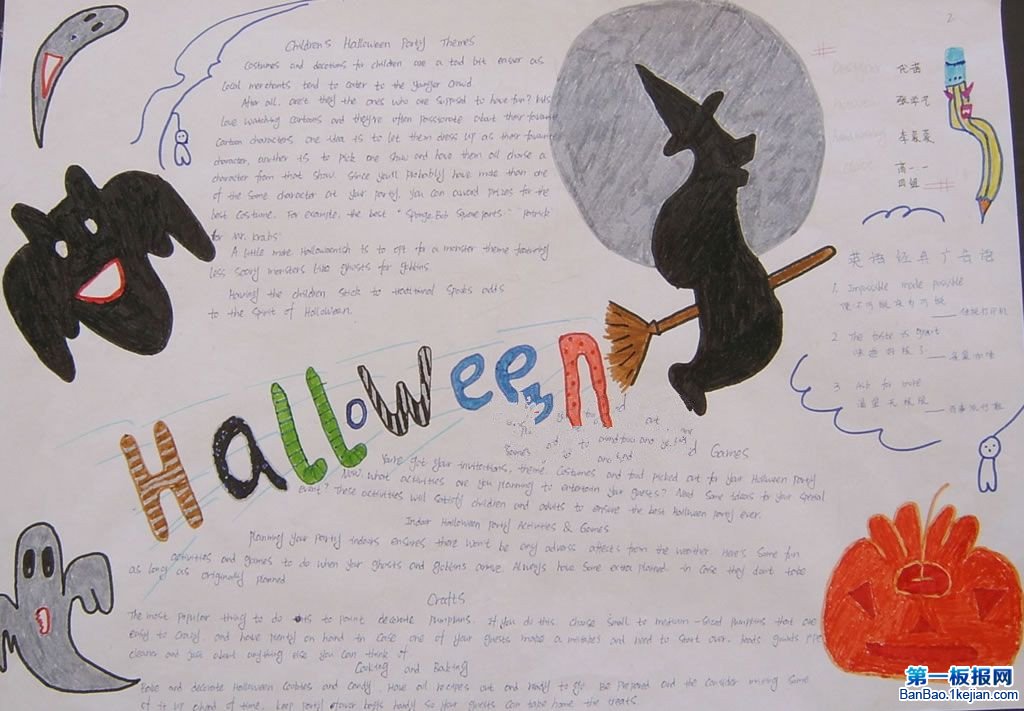 Children's Halloween Party Themes
Costumes and decorations for children are a tad bit easier as
local merchants tend to cater to the younger crowd
After all, aren't they the ones who are supposed to have fun? kids
love watching cartoons and they're often passionate about their favourite
cartoon characters one idea is to let them dress up as their favourite
character, another is to pick one show and have them all chose a
character from that show. since you'll probably have more than one
of the same character at your party, you can award prizes for the
best costume. For example, the best "Sponge Bob Square pants" Patrick
or Mr. krabs.
A little more Halloweenish is to opt for a monster theme featuring
less scary monsters like ghosts for goblins.
Having the children stick to traditional spooks adds
to the spirit of Halloween.
2
Halloween
张学艺
高一一
四组
英语经典广告语
1. Impossible made possible
使不可能变为可能
佳能打印机
2 The taste is great
味道好极了
雀巢咖啡
3 Ask for more
渴望无极限
百事流行鞋
Games
You've got your invitations, theme. Costumes and food picked out for your Halloween party
Now what activities are you planning to entertain your guests? Need some ideas for your special
event? These activities will satisfy children and adults to ensure the best Halloween party ever.
Indoor Halloween party Activities & Games
Planning your party indoors ensures there won't be any adverse affects from the weather. Here's some fun
activities and games to do when your ghosts and goblins arrive Always have some extra planned in case they don't take
as long as originally planned
Crafts
The most popular thing to do is to paint decorate pumpkins. If you do this choose small to medium-sized pumpkins that are
easy to carry. and have plenty on hand in case one of your guests makes a mistakes and need to start over.
cleaner and just about anything else you can think of
Cooking and Baking
Bake and decorate Halloween cookies and candy. Have all recipes out and ready to go Be prepared and the consider mixing some
of it up ahead of time. keep party favor boxes handy so your guests can take home the treats
第一板报网
BanBao.1kejian.com